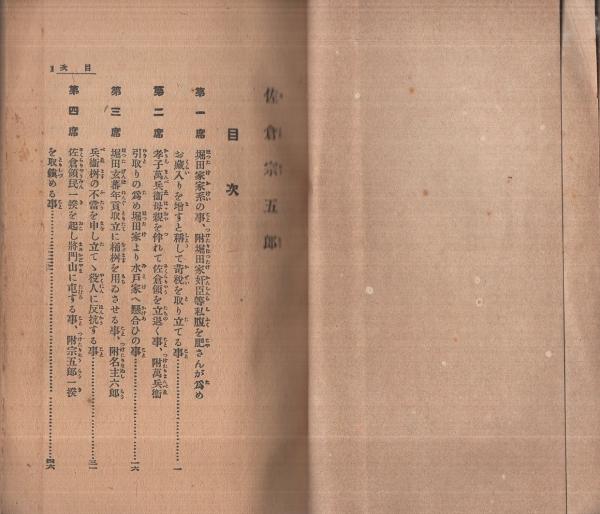 佐倉宗五郎
目次
第一席 堀田家家系の事、附堀田家奸臣等私腹を肥さんが爲め
お藏入りを增すと稱して苛税を取り立てる事…………一
第二席 孝子萬兵衞母親を伴れて佐倉領を立退く事、附萬兵衞
引取りの爲め堀田家より水戸家へ懸合ひの事…………一六
第三席 堀田玄蕃年貢取立に桶桝を用ゐさせる事、附名主六郎
兵衞桝の不當を申し立てゝ役人に反抗する事…………三一
第四席 佐倉領民一揆を起し將門山に屯する事、附宗五郎一揆
を取鎭める事…………四六
目次 1